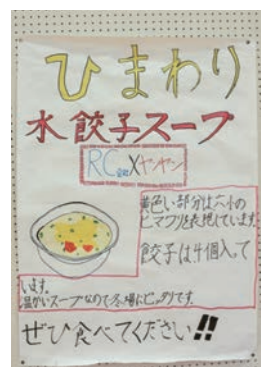 ひまわり
水餃子スープ
RC X ヤンヤン
黄色い部分は六小の
ヒマワリを表現しています。
餃子は4個入って
います。
温かいスープなので冬場にピッタリです。
ぜひ食べてください!!